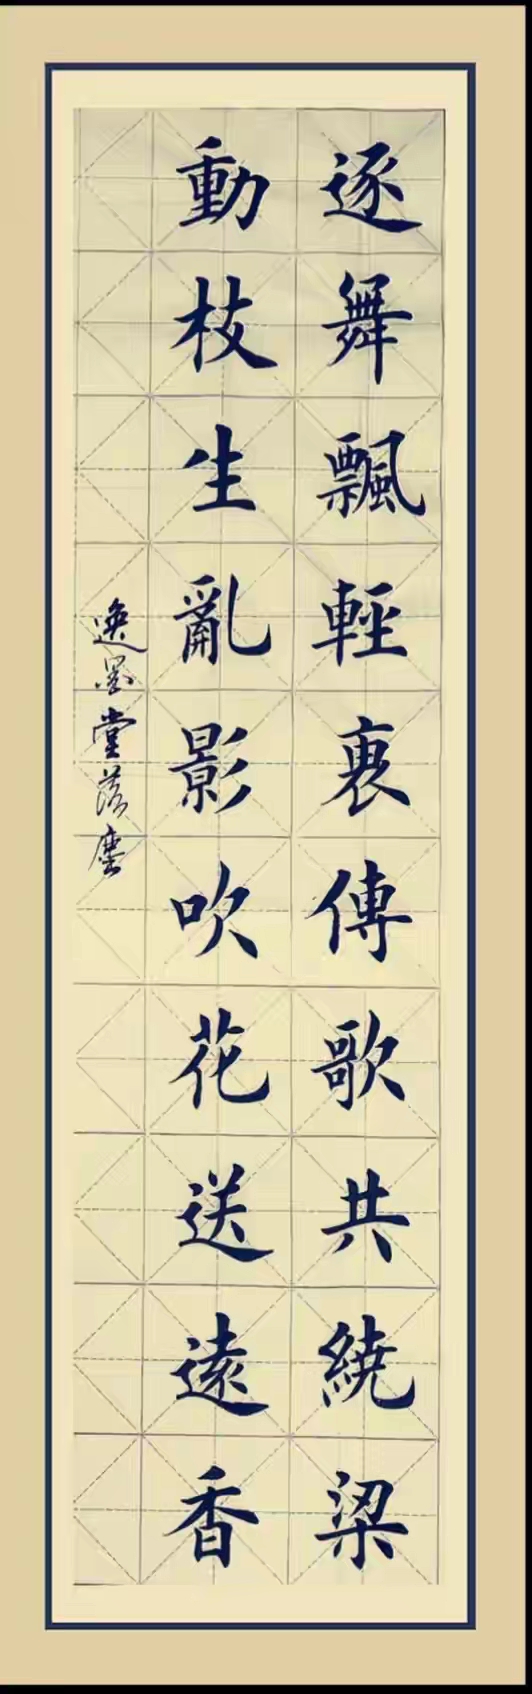 逐舞飄輕袖傳歌共繞梁
動枝生亂影吹花送遠香
逸墨堂落塵